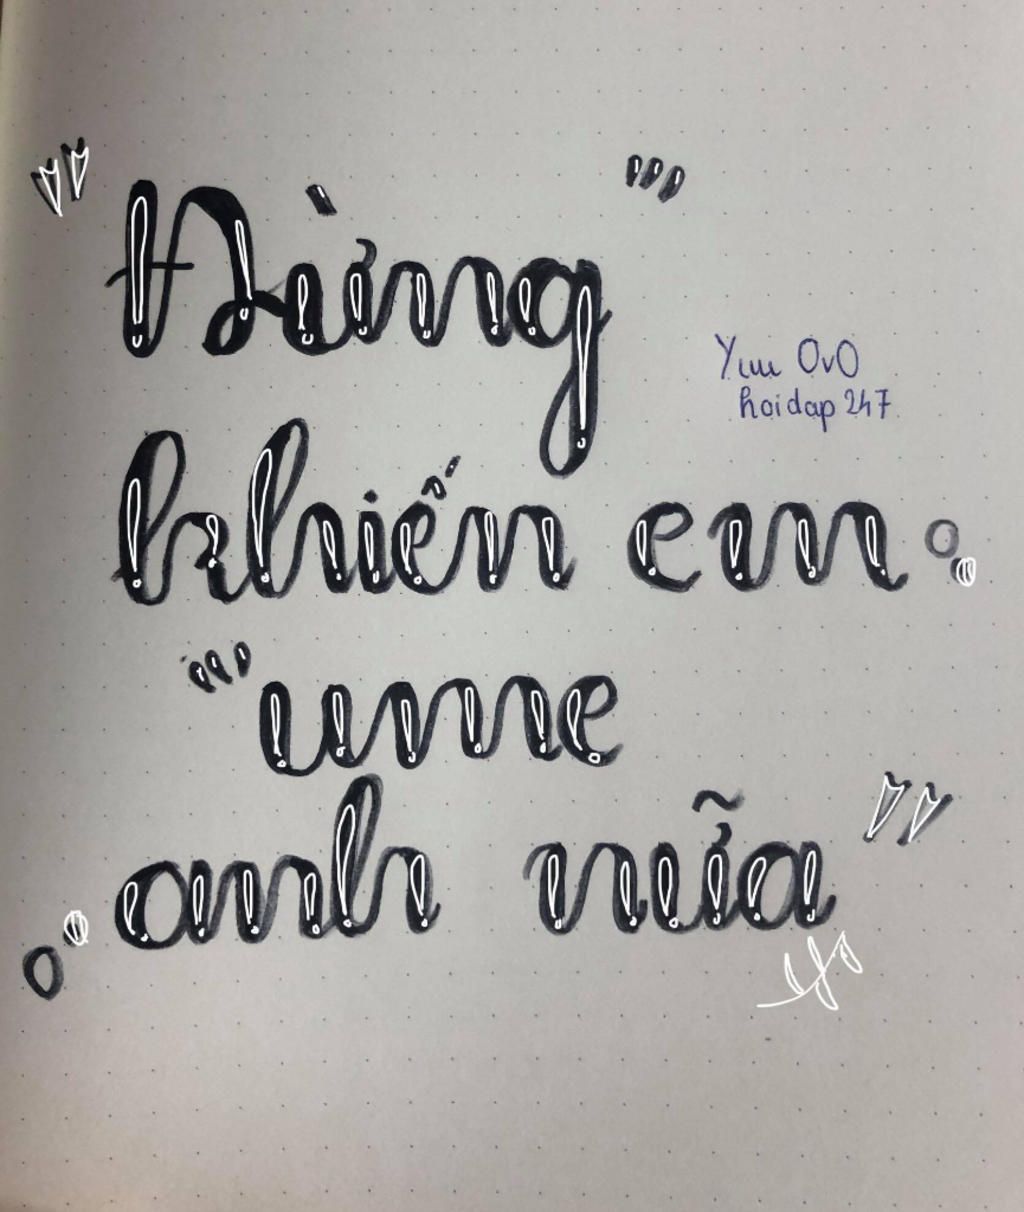 "Đừng
Yuu OvO
hoidap 247
khiến em
ume
anh nữa"